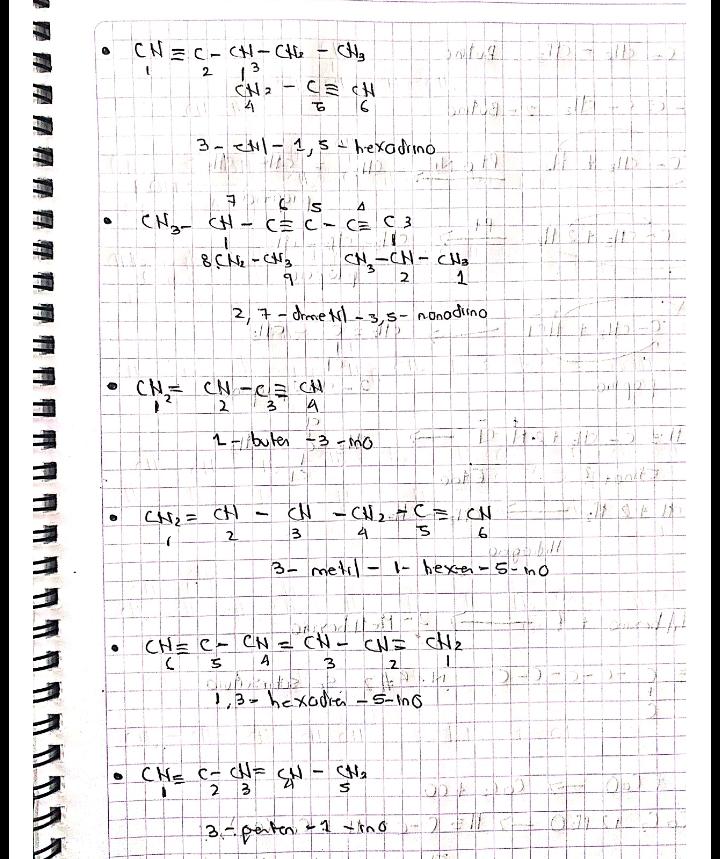 • CH ≡ C - CH - CH2 - CH3
1 2 3
CH2 - C ≡ CH
4 5 6
3 - etil - 1,5 - hexadiino
7 6 5 4
• CH3 - CH - C ≡ C - C ≡ C 3
8 CH2 - CH3 CH3 - CH - CH3
9 2 1
2,7 - dimetil - 3,5 - nonadiino
• CH2 = CH - C ≡ CH
1 2 3 4
1 - buten - 3 - ino
• CH2 = CH - CH - CH2 - C ≡ CH
1 2 3 4 5 6
3 - metil - 1 - hexen - 5 - ino
• CH ≡ C - CH = CH - CH = CH2
6 5 4 3 2 1
1,3 - hexadien - 5 - ino
• CH ≡ C - CH = CH - CH3
1 2 3 4 5
3 - penten - 1 - ino